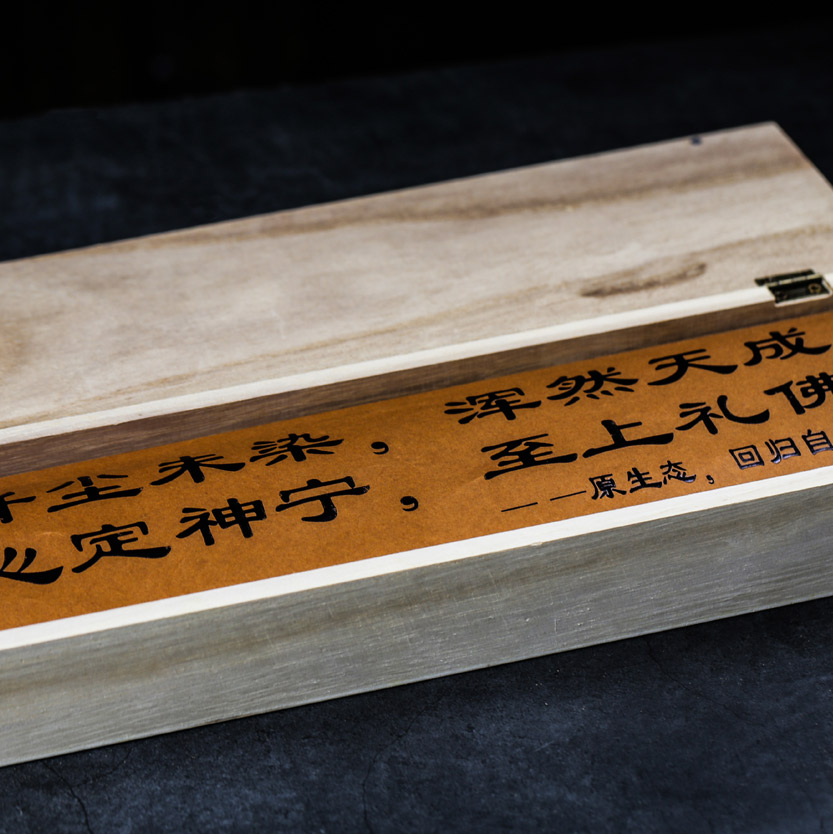 尘未染，浑然天成
心定神宁，至上礼佛
——原生态，回归自